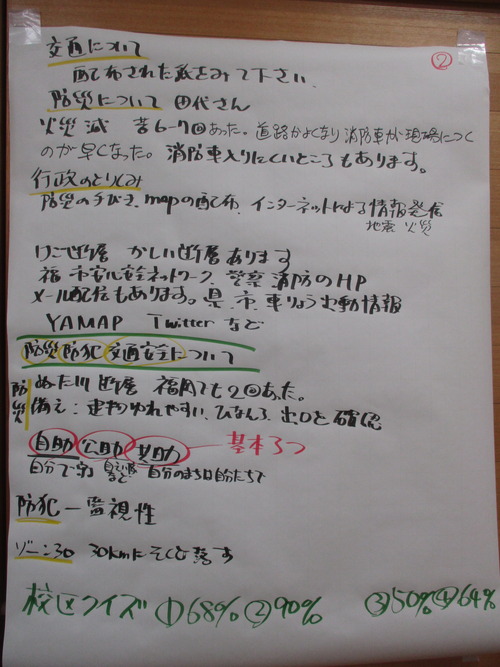 ②
交通について
配布された紙をみて下さい。
防災について 田代さん
火災減 昔6~7回あった。道路がよくなり消防車が現場につく
のが早くなった。消防車入りにくいところもあります。
行政のとりくみ
防災の手びき、mapの配布、インターネットによる情報発信
地震 火災
けご断層 かしい断層あります
福 市安心安全ネットワーク 警察 消防のHP
メール配信もあります。県、市、車りょう出動情報
YAMAP Twitterなど
防災 防犯 交通安全について
防災
断層 福岡でも2回あった。
備え:建物ゆれやすい、ひなんろ、出口を確認
自助 公助 共助 基本3つ
自分で守る 自分のまちは自分たちで
防犯ー監視性
ゾーン30 30kmにそくど落す
校区クイズ ①68% ②90% ③50% ④64%